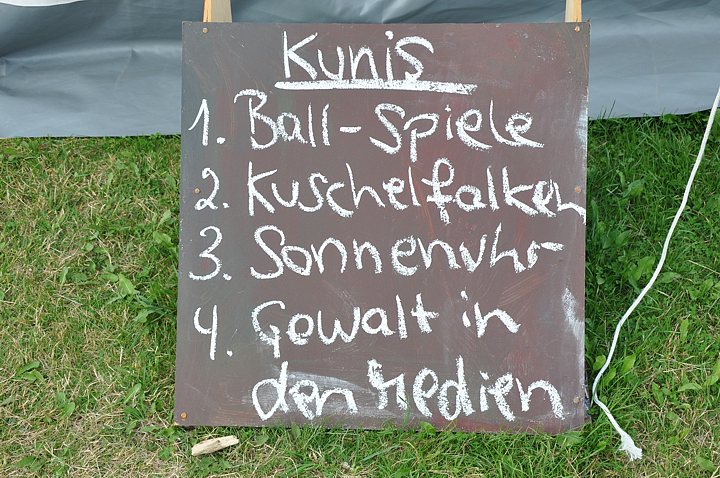 Kunis
1. Ball-Spiele
2. Kuschelfalken
3. Sonnenuhr
4. Gewalt in
den Medien